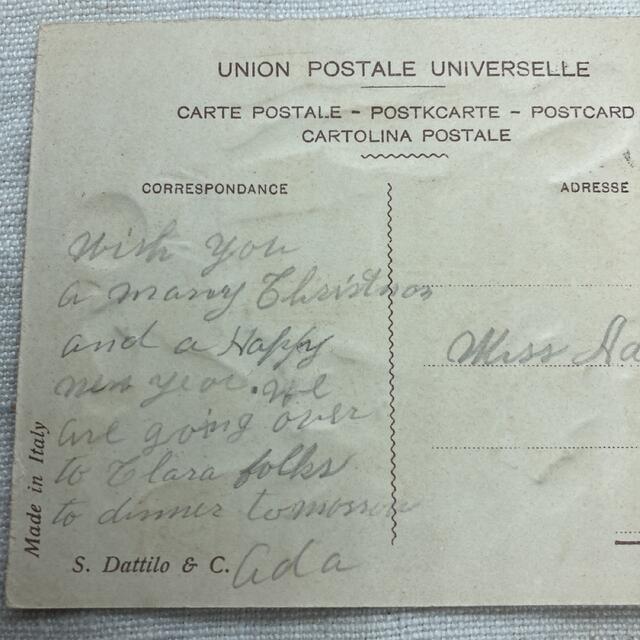 UNION POSTALE UNIVERSELLE
CARTE POSTALE - POSTKCARTE - POSTCARD
CARTOLINA POSTALE
CORRESPONDANCE
ADRESSE
Wish you
a marry Christmas
and a Happy
new year. we
are going over
to Clara folks
to dinner tomorrow
Ada
Miss
Made in Italy
S. Dattilo & C.